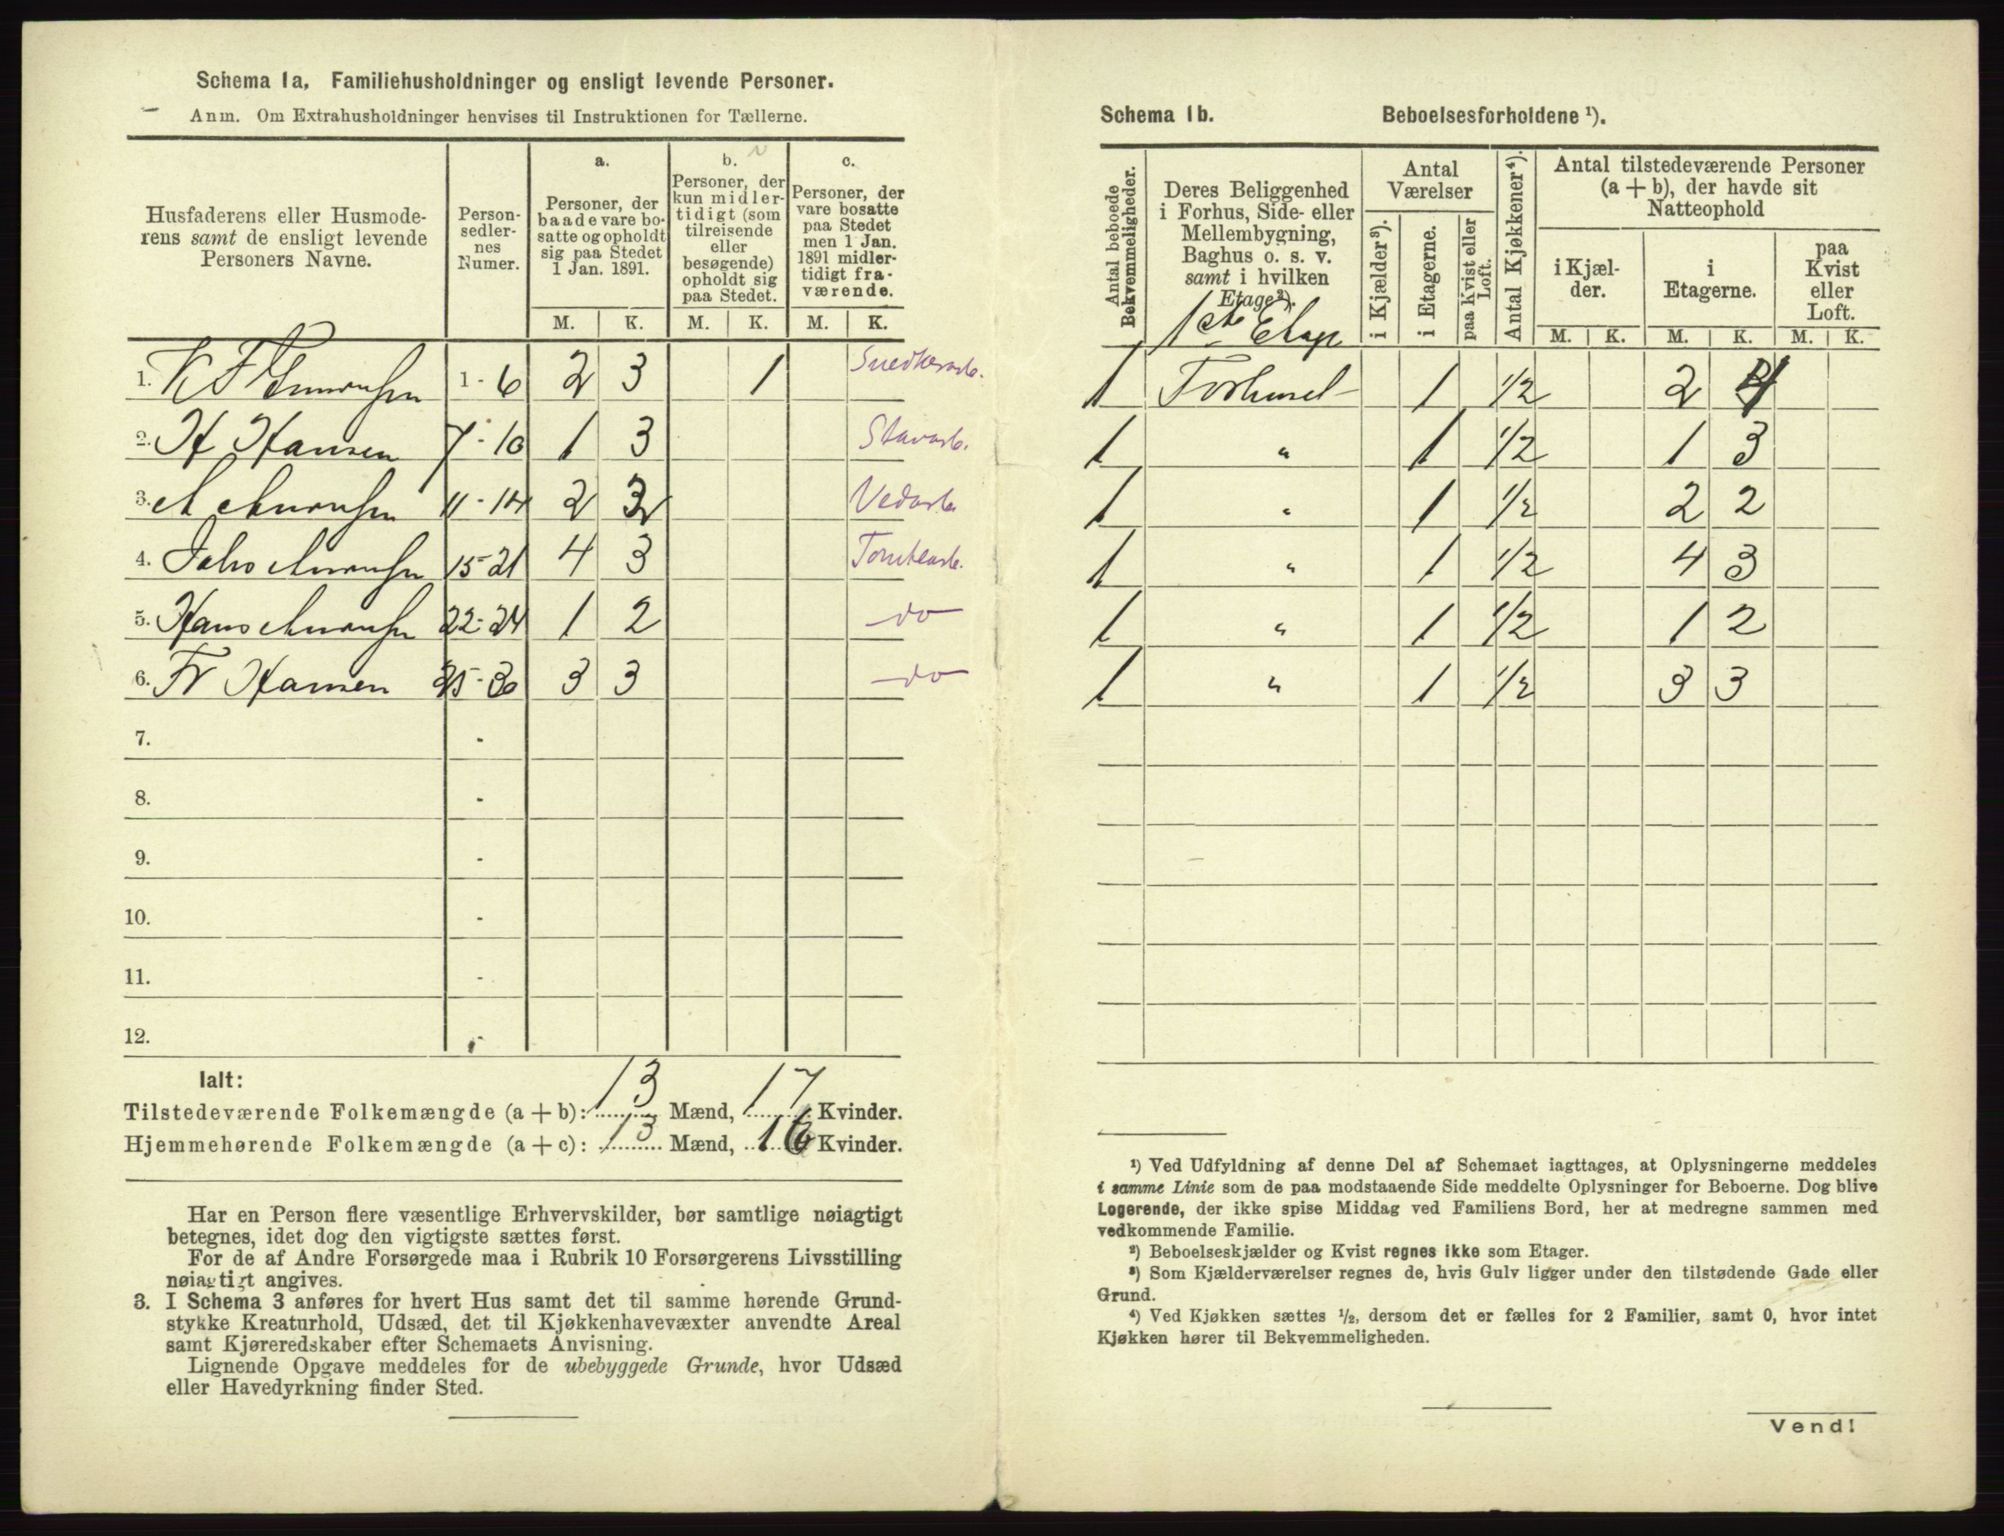 Schema 1a, Familiehusholdninger og ensligt levende Personer.
Anm. Om Extrahusholdninger henvises til Instruktionen for Tællerne.
Husfaderens eller Husmode-
rens samt de ensligt levende
Personers Navne.
Person-
sedler-
nes
Numer.
a.
Personer, der
baade vare bo-
satte og opholdt
sig paa Stedet
1 Jan. 1891.
b.
Personer, der
kun midler-
tidigt (som
tilreisende
eller
besøgende)
opholdt sig
paa Stedet.
c.
Personer, der
vare bosatte
paa Stedet
men 1 Jan.
1891 midler-
tidigt fra-
værende.
M. K. M. K. M. K.
1. 1 - 6 2 3 1 Snedkerarb.
2. H Hansen 7 - 10 1 3
3. 11 - 14 2 2 Vedarb.
4. 15 - 21 4 3 Tomtearb.
5. Hans 22 - 24 1 2 do
6. Fr Hansen 25 - 30 3 3 do
7. -
8. -
9. -
10. -
11. -
12. -
Ialt:
Tilstedeværende Folkemængde (a + b): 13 Mænd, 17 Kvinder.
Hjemmehørende Folkemængde (a + c): 13 Mænd, 16 Kvinder.
Har en Person flere væsentlige Erhvervskilder, bør samtlige nøiagtigt
betegnes, idet dog den vigtigste sættes først.
For de af Andre Forsørgede maa i Rubrik 10 Forsørgerens Livsstilling
nøiagtigt angives.
3. I Schema 3 anføres for hvert Hus samt det til samme hørende Grund-
stykke Kreaturhold, Udsæd, det til Kjøkkenhavevæxter anvendte Areal
samt Kjøreredskaber efter Schemaets Anvisning.
Lignende Opgave meddeles for de ubebyggede Grunde, hvor Udsæd
eller Havedyrkning finder Sted.
Schema 1b. Beboelsesforholdene ¹).
Antal beboede
Bekvemmeligheder.
Deres Beliggenhed
i Forhus, Side- eller
Mellembygning,
Baghus o. s. v.
samt i hvilken
Etage²).
1ste Etage
Antal
Værelser
i Kjælder³).
i Etagerne.
paa Kvist eller
Loft.
Antal Kjøkkener⁴).
Antal tilstedeværende Personer
(a + b), der havde sit
Natteophold
i Kjæl-
der.
i
Etagerne.
paa
Kvist
eller
Loft.
M. K. M. K. M. K.
1 Forhuset 1 1/2 2 4
1 " 1 1/2 1 3
1 " 1 1/2 2 2
1 " 1 1/2 4 3
1 " 1 1/2 1 2
1 " 1 1/2 3 3
¹) Ved Udfyldning af denne Del af Schemaet iagttages, at Oplysningerne meddeles
i samme Linie som de paa modstaaende Side meddelte Oplysninger for Beboerne. Dog blive
Logerende, der ikke spise Middag ved Familiens Bord, her at medregne sammen med
vedkommende Familie.
²) Beboelseskjælder og Kvist regnes ikke som Etager.
³) Som Kjælderværelser regnes de, hvis Gulv ligger under den tilstødende Gade eller
Grund.
⁴) Ved Kjøkken sættes ½, dersom det er fælles for 2 Familier, samt 0, hvor intet
Kjøkken hører til Bekvemmeligheden.
Vend!